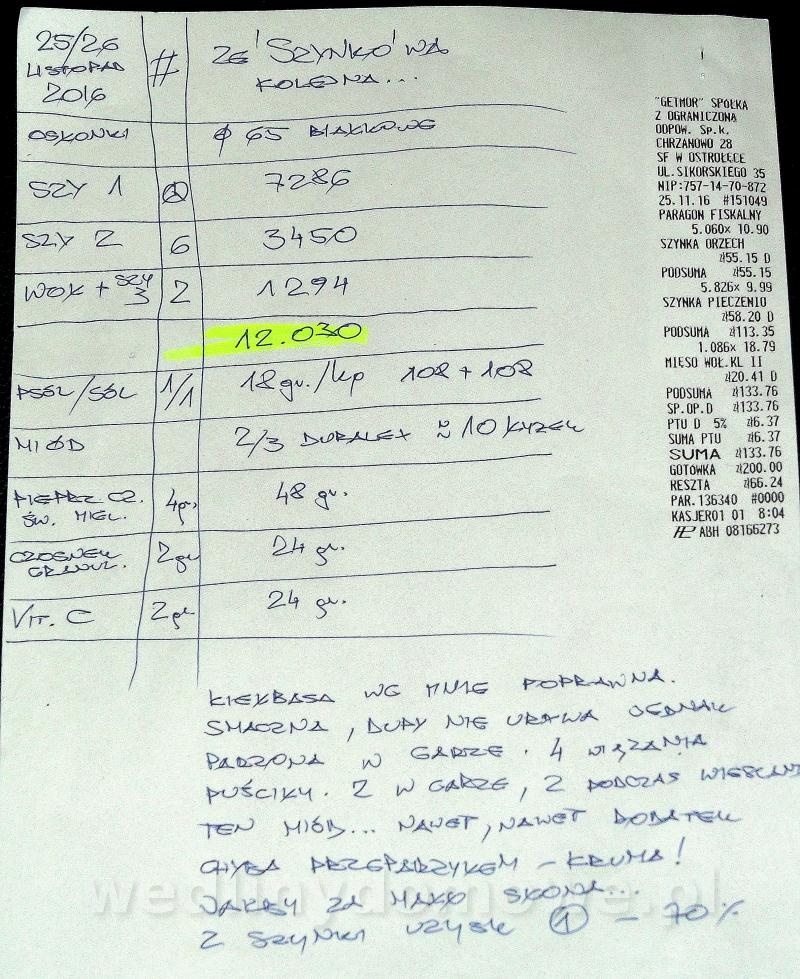 25/26 LISTOPAD 2016 # ZE 'SZYNKO' WA KOLEJNA...
OSŁONKI ϕ 65 BIAŁKOWE
SZY 1 7286
SZY 2 6 3450
WOŁ + SZY 3 2 1294
12.030
PSÓL/SÓL 1/1 18 gr./kg 108 + 108
MIÓD 2/3 DURALEX ≈ 10 ŁYŻEK
PIEPRZ CZ. ŚW. MIEL. 4gr. 48 gr.
CZOSNEK GRANUL. 2gr 24 gr.
VIT. C 2gr 24 gr.
KIEŁBASA WG MNIE POPRAWNA.
SMACZNA, DUPY NIE URYWA JEDNAK
PARZONA W GARZE. 4 WIĄZANIA
PUŚCIŁY. 2 W GARZE, 2 PODCZAS WIESZANIA
TEN MIÓD... NAWET, NAWET DODATEK
CHYBA PRZEPARZYŁEM - KRUMA!
JAKBY ZA MAŁO SŁONA...
Z SZYNKI UZYSK ① - 70%
"GETMOR" SPÓŁKA
Z OGRANICZONĄ
ODPOW. Sp.k.
CHRZANOWO 28
SF W OSTROŁĘCE
UL.SIKORSKIEGO 35
NIP:757-14-70-872
25.11.16 #151049
PARAGON FISKALNY
5.060x 10.90
SZYNKA ORZECH
zł55.15 D
PODSUMA zł55.15
5.826x 9.99
SZYNKA PIECZENIO
zł58.20 D
PODSUMA zł113.35
1.086x 18.79
MIĘSO WOŁ.KL II
zł20.41 D
PODSUMA zł133.76
SP.OP.D zł133.76
PTU D 5% zł6.37
SUMA PTU zł6.37
SUMA zł133.76
GOTÓWKA zł200.00
RESZTA zł66.24
PAR.136340 #0000
KASJER01 01 8:04
ABH 08166273
wedlinydomowe.pl